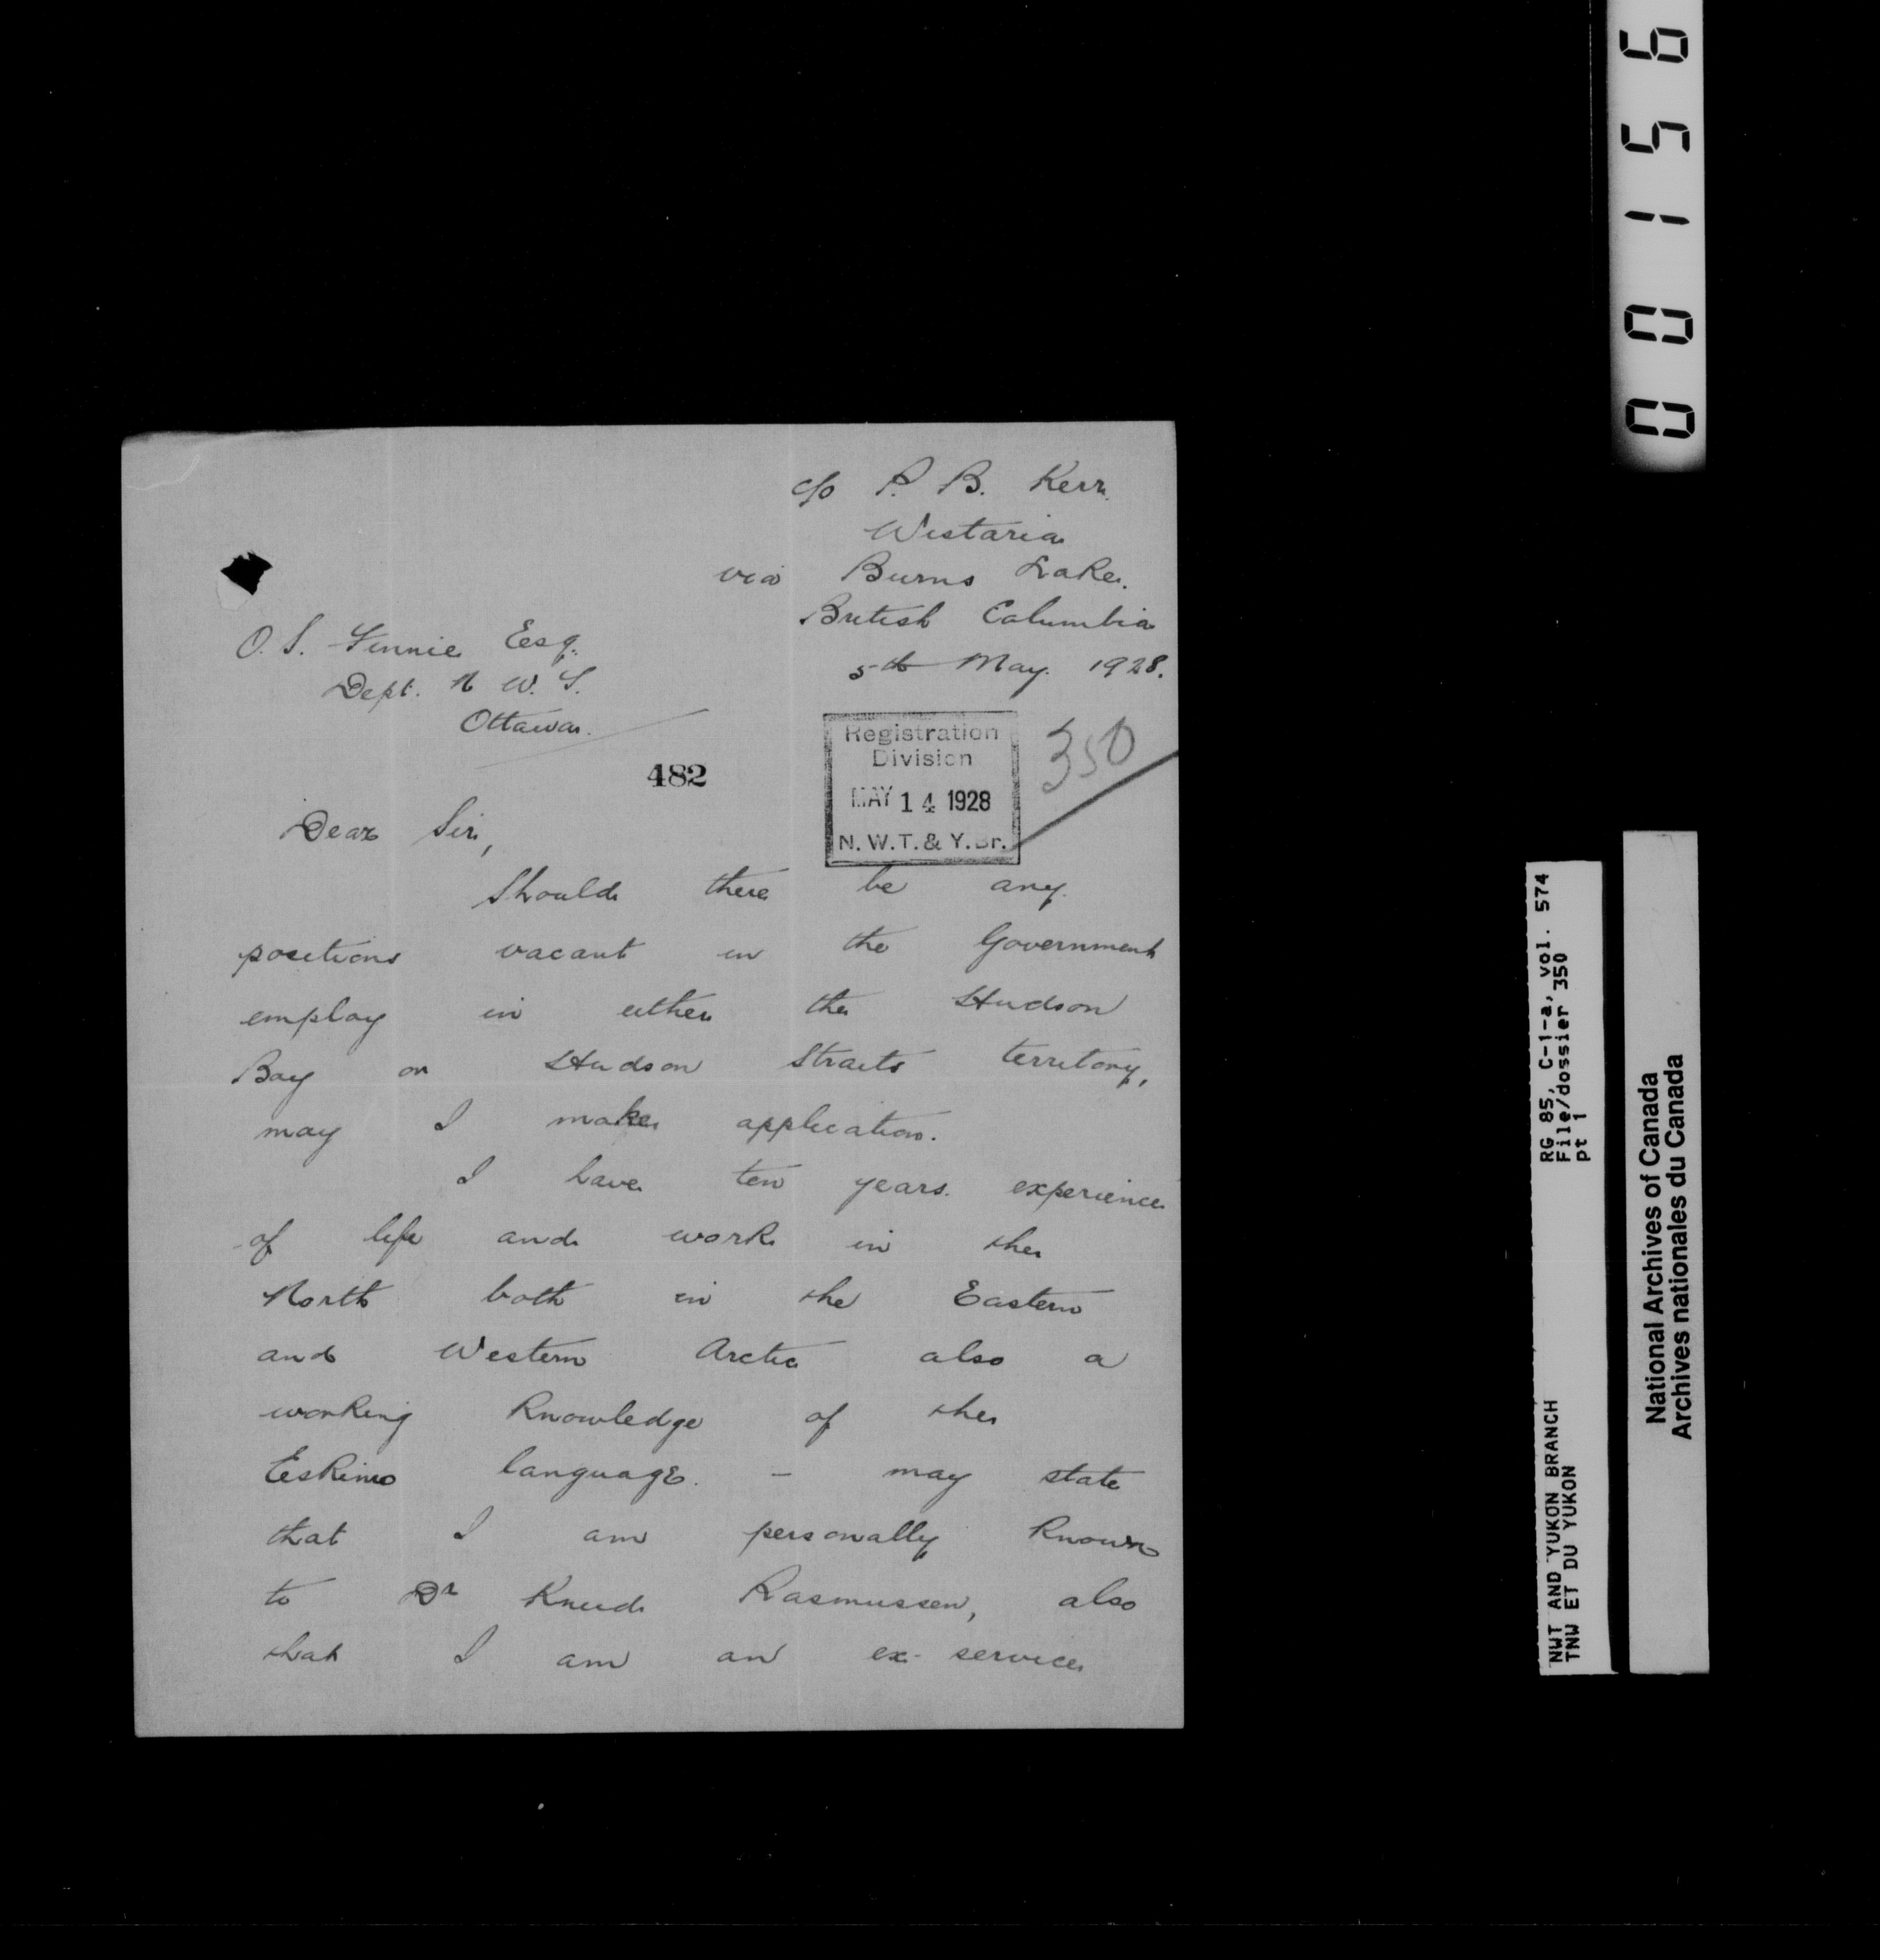 c/o P. B. Kerr.
Wistaria
via Burns Lake.
British Columbia
5th May. 1928.
O. S. Finnie Esq.
Dept. N. W. T.
Ottawa.
482
Registration
Division
MAY 14 1928
N. W. T. & Y. Br.
350
Dear Sir,
Should there be any
positions vacant in the Government
employ in either the Hudson
Bay or Hudson Straits territory,
may I make application.
I have ten years. experience
of life and work in the
North both in the Eastern
and Western Arctic also a
working knowledge of the
Eskimo language. - may state
that I am personally known
to Dr Knud Rasmussen, also
that I am an ex-service
00156
RG 85, C-1-a, vol. 574
File/dossier 350
pt 1
NWT AND YUKON BRANCH
TNW ET DU YUKON
National Archives of Canada
Archives nationales du Canada